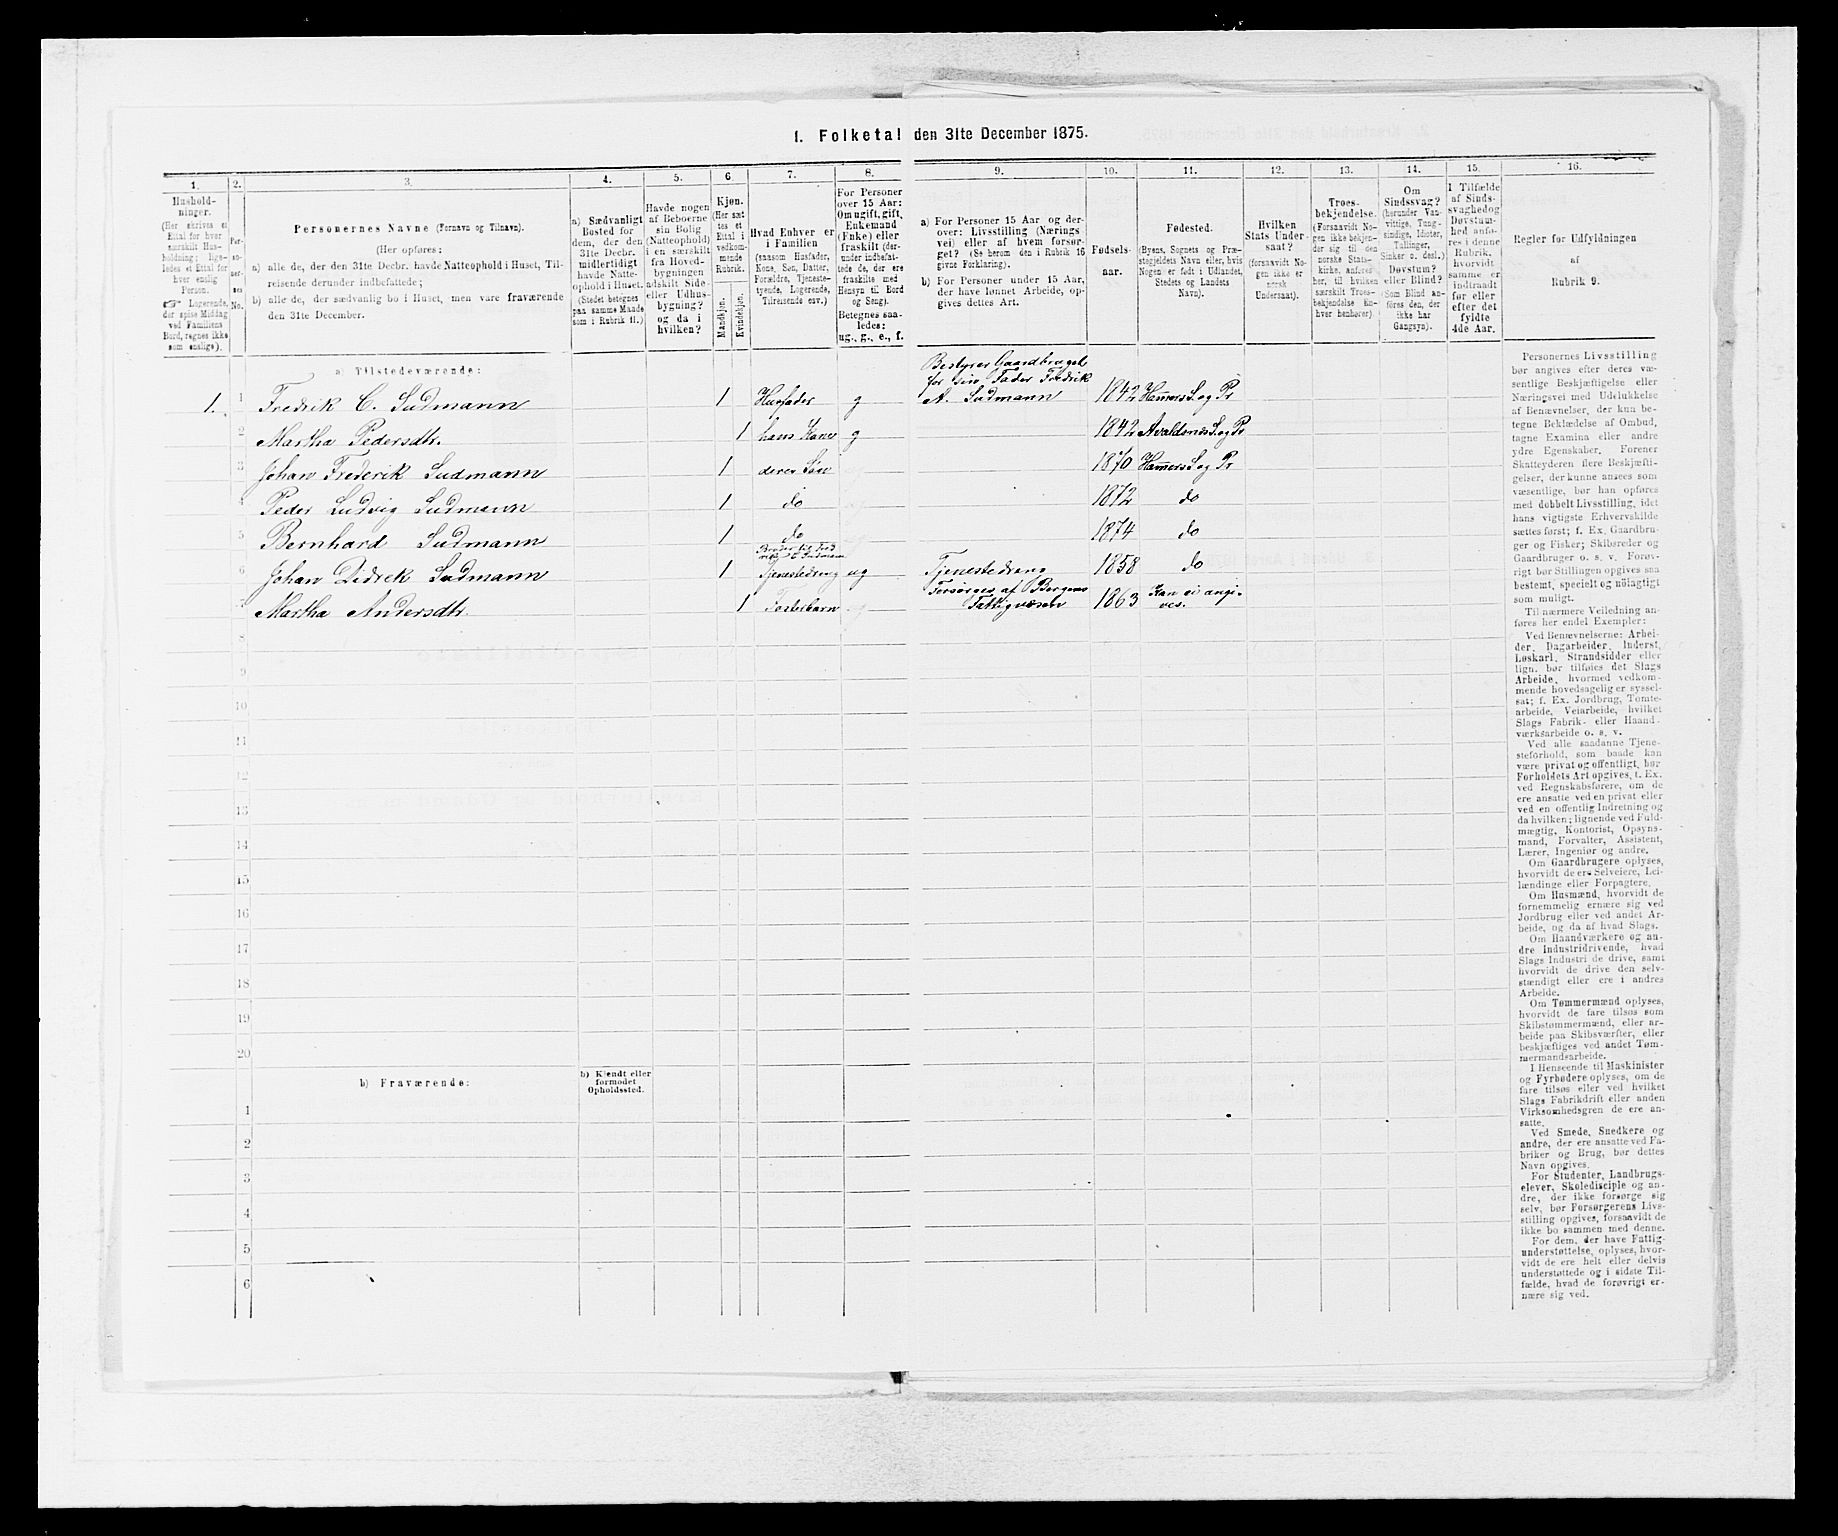 1. Folketal den 31te December 1875.
1. 2. 3. 4. 5. 6 7. 8. 9. 10. 11. 12. 13. 14. 15. 16.
Hushold-
ninger.
(Her skrives et
Ettal for hver
særskilt Hus-
holdning; lige-
ledes et Ettal for
hver enslig
Person.
☞ Logerende,
der spise Middag
ved Familiens
Bord, regnes ikke
som enslige).
Per-
so-
ner-
nes
No.
Personernes Navne (Fornavn og Tilnavn).
(Her opføres:
a) alle de, der den 31te Decbr. havde Natteophold i Huset, Til-
reisende derunder indbefattede;
b) alle de, der sædvanlig bo i Huset, men vare fraværende
den 31te December.
a) Sædvanligt
Bosted for
dem, der den
31te Decbr.
midlertidigt
havde Natte-
ophold i Huset.
(Stedet betegnes
paa samme Maade
som i Rubrik 11.)
Havde nogen
af Beboerne
sin Bolig
(Natteophold)
i en særskilt
fra Hoved-
bygningen
adskilt Side-
eller Udhus-
bygning?
og da i
hvilken?
Kjøn.
(Her sæt
tes et
Ettal i
vedkom-
mende
Rubrik.
Mandkjøn.
Kvindekjøn.
Hvad Enhver er
i Familien
(saasom Husfader,
Kone, Søn, Datter,
Forældre, Tjeneste-
tyende, Logerende,
Tilreisende osv.)
For Personer
over 15 Aar:
Om ugift, gift,
Enkemand
(Enke) eller
fraskilt (der-
under indbefat-
tede de, der ere
fraskilte med
Hensyn til Bord
og Seng).
Betegnes saa-
ledes:
ug., g., e., f.
a) For Personer 15 Aar og der-
over: Livsstilling (Nærings
vei) eller af hvem forsør-
get? (Se herom den i Rubrik 16
givne Forklaring).
b) For Personer under 15 Aar,
der have lønnet Arbeide, op-
gives dettes Art.
Fødsels-
aar.
Fødested.
(Byens, Sognets og Præ-
stegjeldets Navn eller, hvis
Nogen er født i Udlandet,
Stedets og Landets
Navn).
Hvilken
Stats Under-
saat?
(forsaavidt No-
gen ikke er
norsk
Undersaat).
Troes-
bekjendelse.
(Forsaavidt No-
gen ikke bekjen-
der sig til den
norske Stats-
kirke, anføres
her, til hvilken
særskilt Troes-
bekjendelse En-
hver henhører)
Om
Sindssvag?
(herunder Van-
vittige, Tung-
sindige, Idioter,
Tullinger,
Sinker o. desl.)
Døvstum?
eller Blind?
(Som Blind an-
føres den, der
ikke har
Gangsyn).
I Tilfælde
af Sinds-
svaghed og
Døvstum-
hed anfø-
res i denne
Rubrik,
hvorvidt
samme er
indtraadt
før eller
efter det
fyldte
4de Aar.
Regler for Udfyldningen
af
Rubrik 9.
a) Tilstedeværende:
1. 1 Fredrik C. Sudmann 1 Husfader g Bestyrer Gaardbruget for sin Fader Fredrik A. Sudmann 1842 Hamers S. og Pr
2 Martha Pedersdtr. 1 hans Kone g 1842 Avaldsnes S. og Pr
3 Johan Frederik Sudmann 1 deres Søn 1870 Hamers S. og Pr
4 Peder Ludvig Sudmann 1 do 1872 do
5 Bernhard Sudmann 1 do 1874 do
6 Johan Didrek Sudmann 1 Broder til Fredrik C Sudmann Tjenestedreng ug Tjenestedreng 1858 do
7 Martha Andersdtr. 1 Fosterbarn Forsørges af Bergens Fattigvæsen 1863 Kan ei angives.
8
9
10
11
12
13
14
15
16
17
18
19
20
b) Fraværende:
b) Kjendt eller
formodet
Opholdssted.
1
2
3
4
5
6
Personernes Livsstilling
bør angives efter deres væ-
sentlige Beskjæftigelse eller
Næringsvei med Udelukkelse
af Benævnelser, der kun be-
tegne Beklædelse af Ombud,
tagne Examina eller andre
ydre Egenskaber. Forener
Skatteyderen flere Beskjæfti-
gelser, der kunne ansees som
væsentlige, bør han opføres
med dobbelt Livsstilling, idet
hans vigtigste Erhvervskilde
sættes først; f. Ex. Gaardbru-
ger og Fisker; Skibsreder og
Gaardbruger o. s. v. Forøv-
rigt bør Stillingen opgives saa
bestemt, specielt og nøiagtigt
som muligt.
Til nærmere Veiledning an-
føres her endel Exempler:
Ved Benævnelserne: Arbei-
der, Dagarbeider, Inderst,
Løskarl, Strandsidder eller
lign. bør tilføies det Slags
Arbeide, hvormed vedkom-
mende hovedsagelig er syssel-
sat; f. Ex. Jordbrug, Tomte-
arbeide, Veiarbeide, hvilket
Slags Fabrik- eller Haand-
værksarbeide o. s. v.
Ved alle saadanne Tjene-
steforhold, som baade kan
være privat og offentligt, bør
Forholdets Art opgives, f. Ex.
ved Regnskabsførere, om de
ere ansatte ved en privat eller
ved en offentlig Indretning og
da hvilken; lignende ved Fuld-
mægtig, Kontorist, Opsyns-
mand, Forvalter, Assistent,
Lærer, Ingeniør og andre.
Om Gaardbrugere oplyses,
hvorvidt de ere Selveiere, Lei-
lændinge eller Forpagtere.
Om Husmænd, hvorvidt de
fornemmelig ernære sig ved
Jordbrug eller ved andet Ar-
beide, og da af hvad Slags.
Om Haandværkere og an-
dre Industridrivende, hvad
Slags Industri de drive, samt
hvorvidt de drive den selv-
stændigt eller ere i andres
Arbeide.
Om Tømmermænd oplyses,
hvorvidt de fare tilsøs som
Skibstømmermænd, eller ar-
beide paa Skibsværfter, eller
beskjæftiges ved andet Tøm-
mermandsarbeide.
I Henseende til Maskinister
og Fyrbødere oplyses, om de
fare tilsøs eller ved hvilket
Slags Fabrikdrift eller anden
Virksomhedsgren de ere an-
satte.
Ved Smede, Snedkere og
andre, der ere ansatte ved Fa-
briker og Brug, bør dettes
Navn opgives.
For Studenter, Landbrugs-
elever, Skoledisciple og an-
dre, der ikke forsørge sig
selv, bør Forsørgerens Livs-
stilling opgives, forsaavidt de
ikke bo sammen med denne.
For dem, der have Fattig-
understøttelse, oplyses, hvor-
vidt de ere helt eller delvis
understøttede og i sidste Til-
fælde, hvad de forøvrigt er-
nære sig ved.